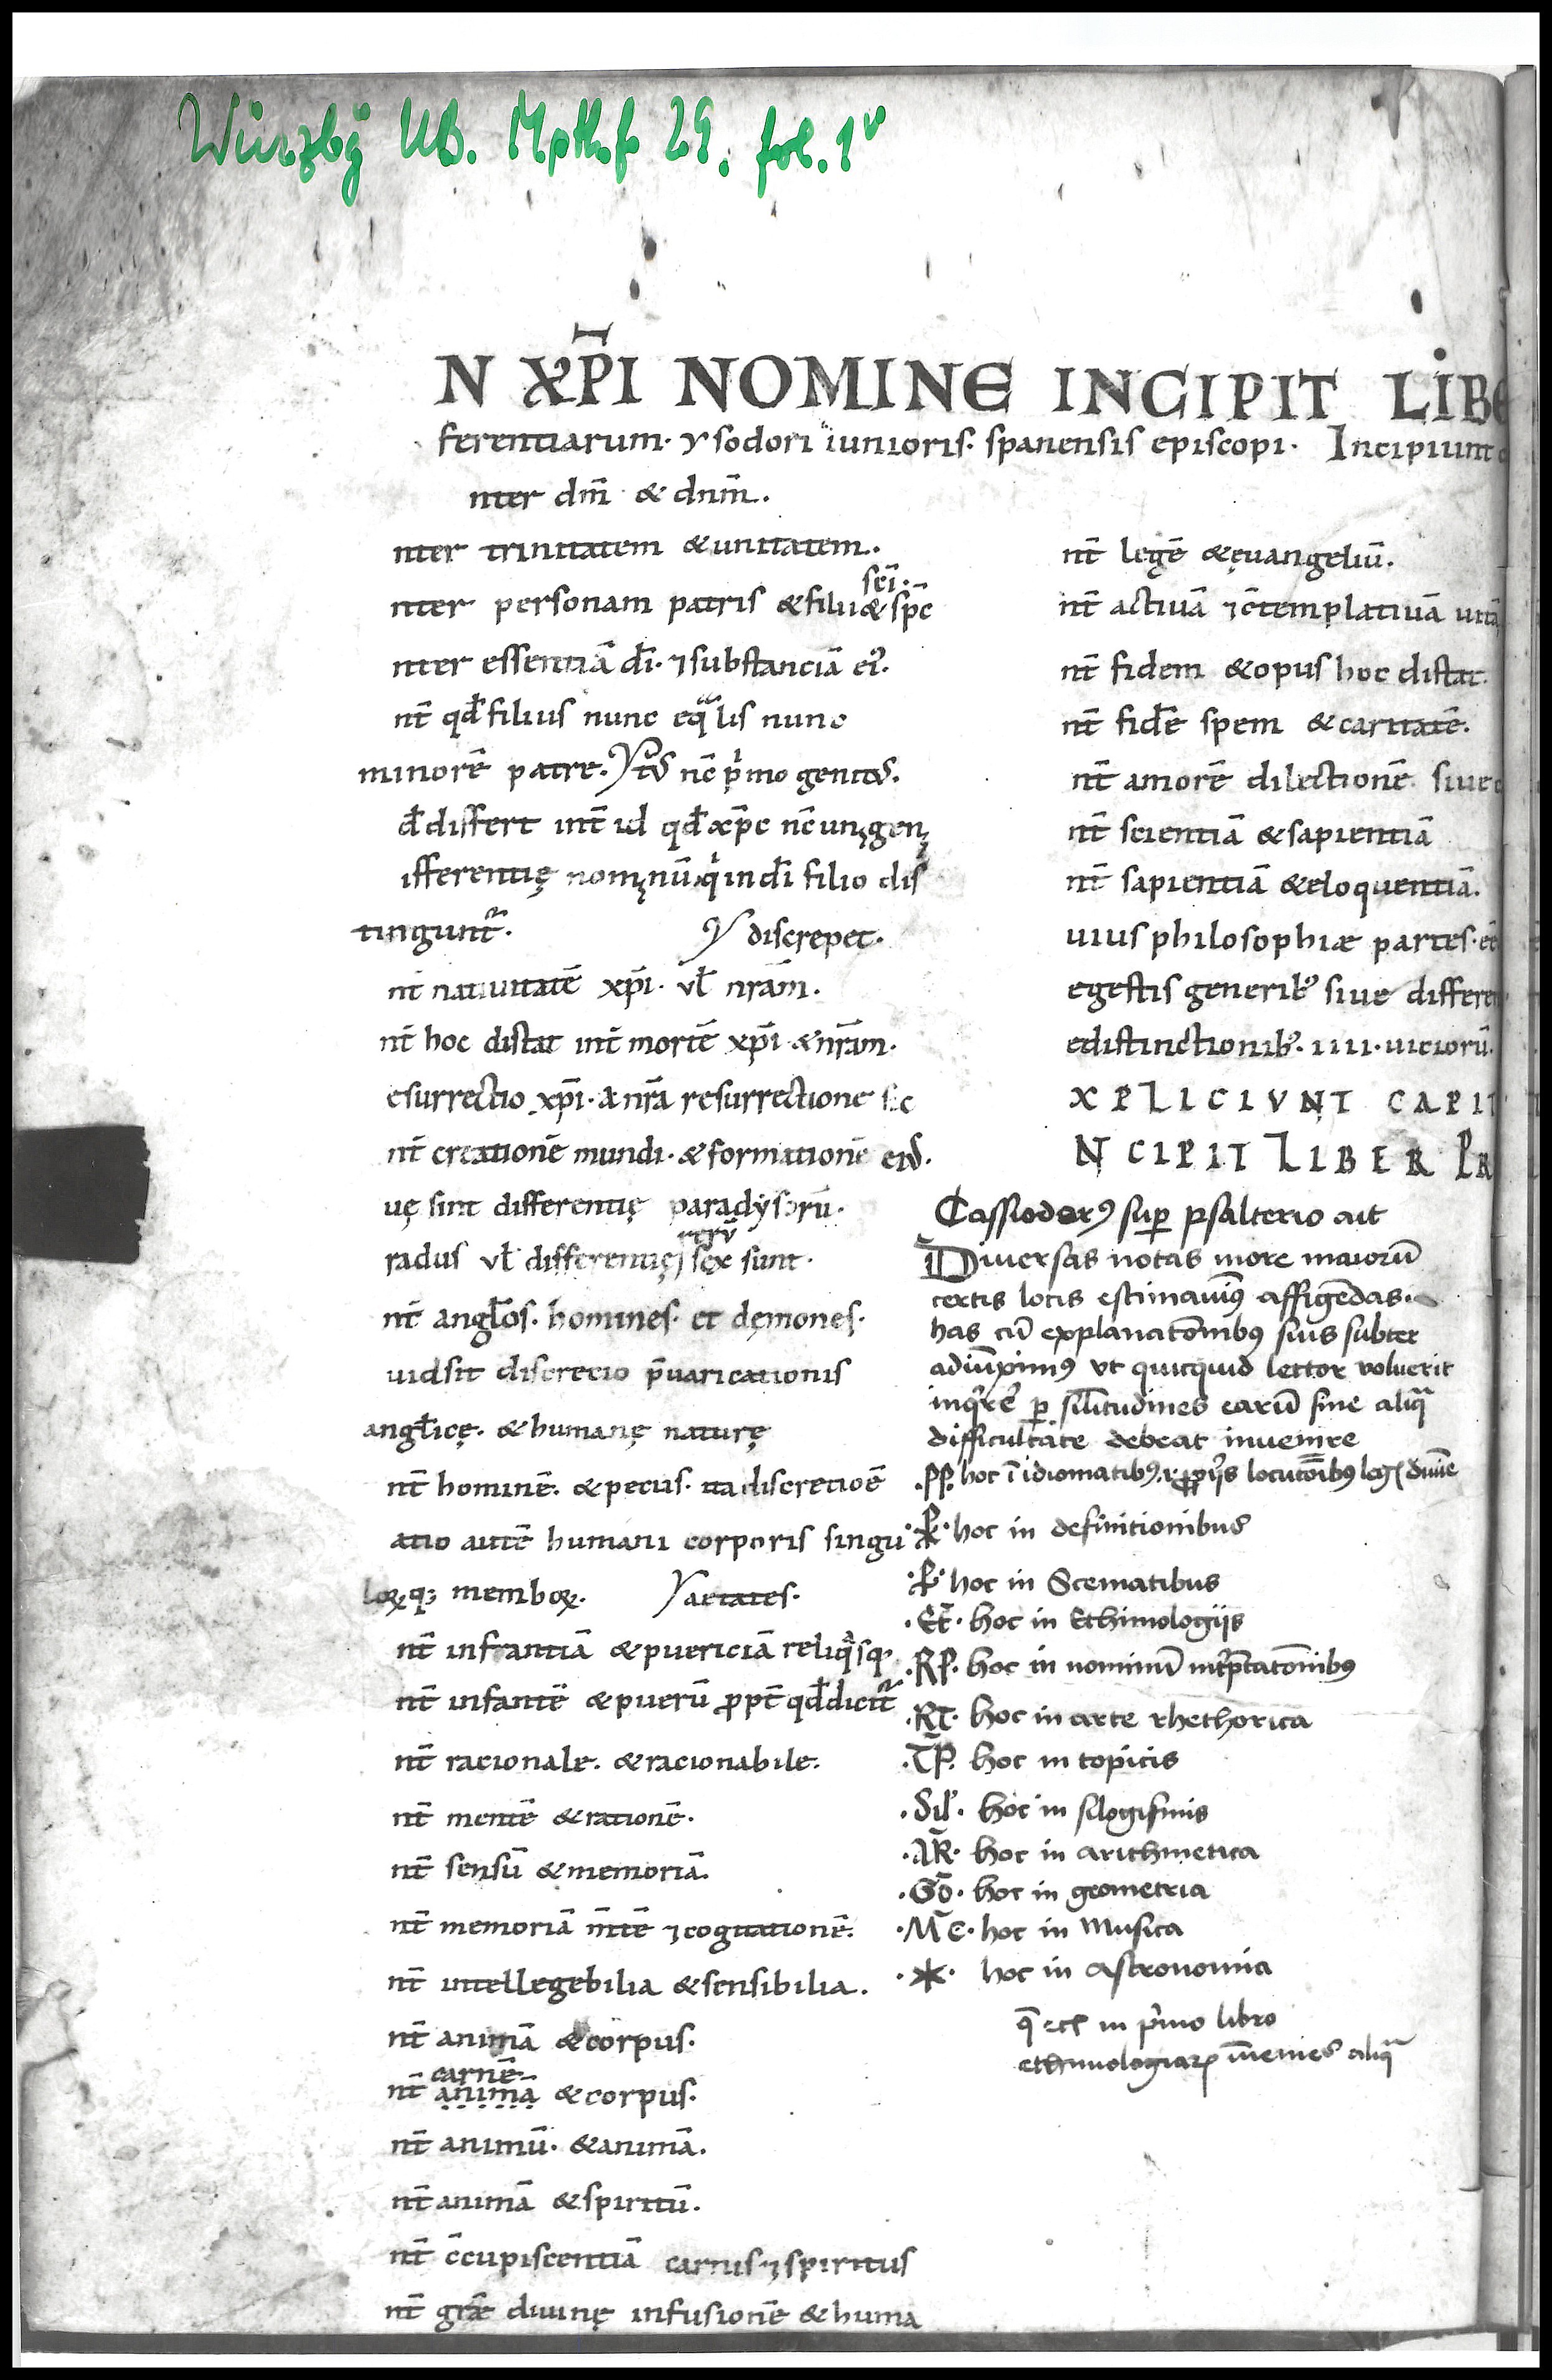 Würzbg UB. M.p.th.f. 29. fol. 1v
N XP̄I NOMINE INCIPIT LIBE
ferentiarum· ysodori iunioris· spanensis episcopi· Incipiunt
nter dm̄ & dnm̄.
nter trinitatem & unitatem.
sci·
nter personam patris & filii & sp̄c
nter essentiā dī· ⁊ substanciā ei᷒·
nt̄ qđ filius nunc eqᵃlis nunc
minorē patre· Ytꝰ nc̄ pⁱmo genitꝰ.
đ differt int̄ id qđ xp̄c nc̄ unigeni
ifferentię nominū qⁱ in dī filio dis
tingunt᷑· Y discrepet·
nt̄ natiuitatē xp̄i· vł nrām·
nt̄ hoc distat int̄ mortē xp̄i· & nrām·
esurrectio xp̄i· a nrā resurrectione sic
nt̄ creationē mundi· & formationē eiꝰ·
uę sint differentię paradysorū·
rerū
radus vł differentię sex sunt·
nt̄ angłos· homines· et dęmones·
uid sit discretio p̄uaricationis
angłicę· & humanę naturę
nt̄ hominē· & pecus· ita discretioē
atio autē humani corporis singu
loꝝq; memboꝝ· Y aetates·
nt̄ infrantiā & puericiā reliqᵃsq·
nt̄ infantē & puerū ꝓpt̄ qđ dicit᷑
nt̄ racionale· & racionabile·
nt̄ mentē & rationē·
nt̄ sensū & memoriā·
nt̄ memoriā m̄tē ⁊ cogitationē·
nt̄ intellegebilia & sensibilia·
nt̄ animā & corpus·
carnē
nt̄ animā & corpus·
nt̄ animū· & animā·
nt̄ animā & spiritū·
nt̄ c̄cupiscentiā carnis ⁊ spiritus
nt̄ grāe diuinę infusionē & huma
nt̄ legē & ęuangeliū·
nt̄ actiuā ⁊ c̄templatiuā uitā
nt̄ fidem & opus hoc distat·
nt̄ fidē spem & caritatē·
nt̄ amorē dilectionē· siue
nt̄ scientiā & sapientiā
nt̄ sapientiā & eloquentiā·
uius philosophiæ partes·
egestis generibꝰ siue differen
edistinctionibꝰ· IIII· uiciorū·
XPLICIVNT CAPIT
NCIPIT LIBER PR
Cassiodorꝰ suꝑ psalterio ait
Diuersas notas more maiorū
certis locis estimauimꝰ affigēdas·
has cū explanatōnibꝰ suis subter
adiūximꝰ vt quicquid lector voluerit
inqⁱrē ꝑ silitudines earū sine aliqᵃ
difficultate debeat inuenire
·PP· hoc ī idiomatibꝰ· ꝓprijs locutōnibꝰ leg diuīe
hoc in definitionibus
hoc in Scematibus
·Et̄· hoc in Ethimologijs
·RP· hoc in nominū int̄pretatōnibus
·RT· hoc in arte rhethorica
·T̄P· hoc in topicis
·Sił· hoc in silogismis
·ĀR· hoc in arithmetica
·Gō· hoc in geometria
·M̄c· hoc in Musica
·✳· hoc in astronomia
in pⁱmo libro
ethimologiaꝝ īuenies aliqᵃ